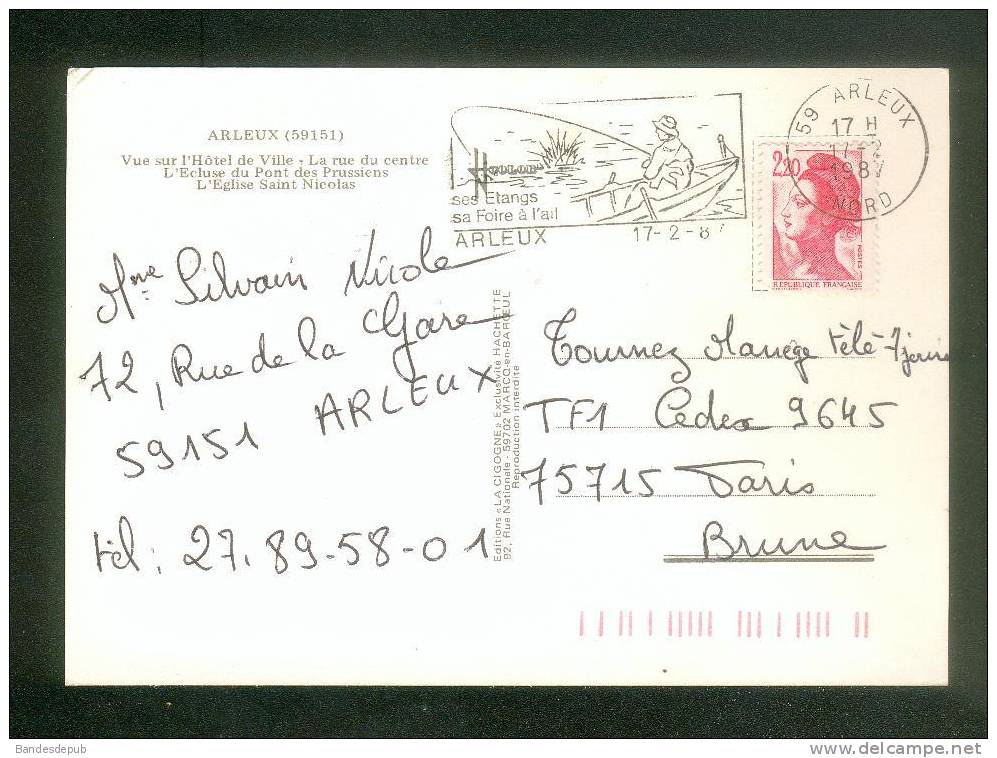 ARLEUX (59151)
Vue sur l'Hôtel de Ville - La rue du centre
L'Ecluse du Pont des Prussiens
L'Eglise Saint Nicolas
COLOR
ses Etangs
sa Foire à l'ail
ARLEUX
17-2-87
59 ARLEUX
17 H
17-2
1987
NORD
2,20
POSTES
REPUBLIQUE FRANÇAISE
Mme Silvain Nicole
72, Rue de la Gare
59151 ARLEUX
tél: 27.89-58-01
Editions «LA CIGOGNE» Exclusivité HACHETTE
92, Rue Nationale - 59702 MARCQ-en-BARŒUL
Reproduction interdite
Tournez Manège télé 7 jours
TF1 Cedex 9645
75715 Paris
Brune
Bandesdepub
www.delcampe.net